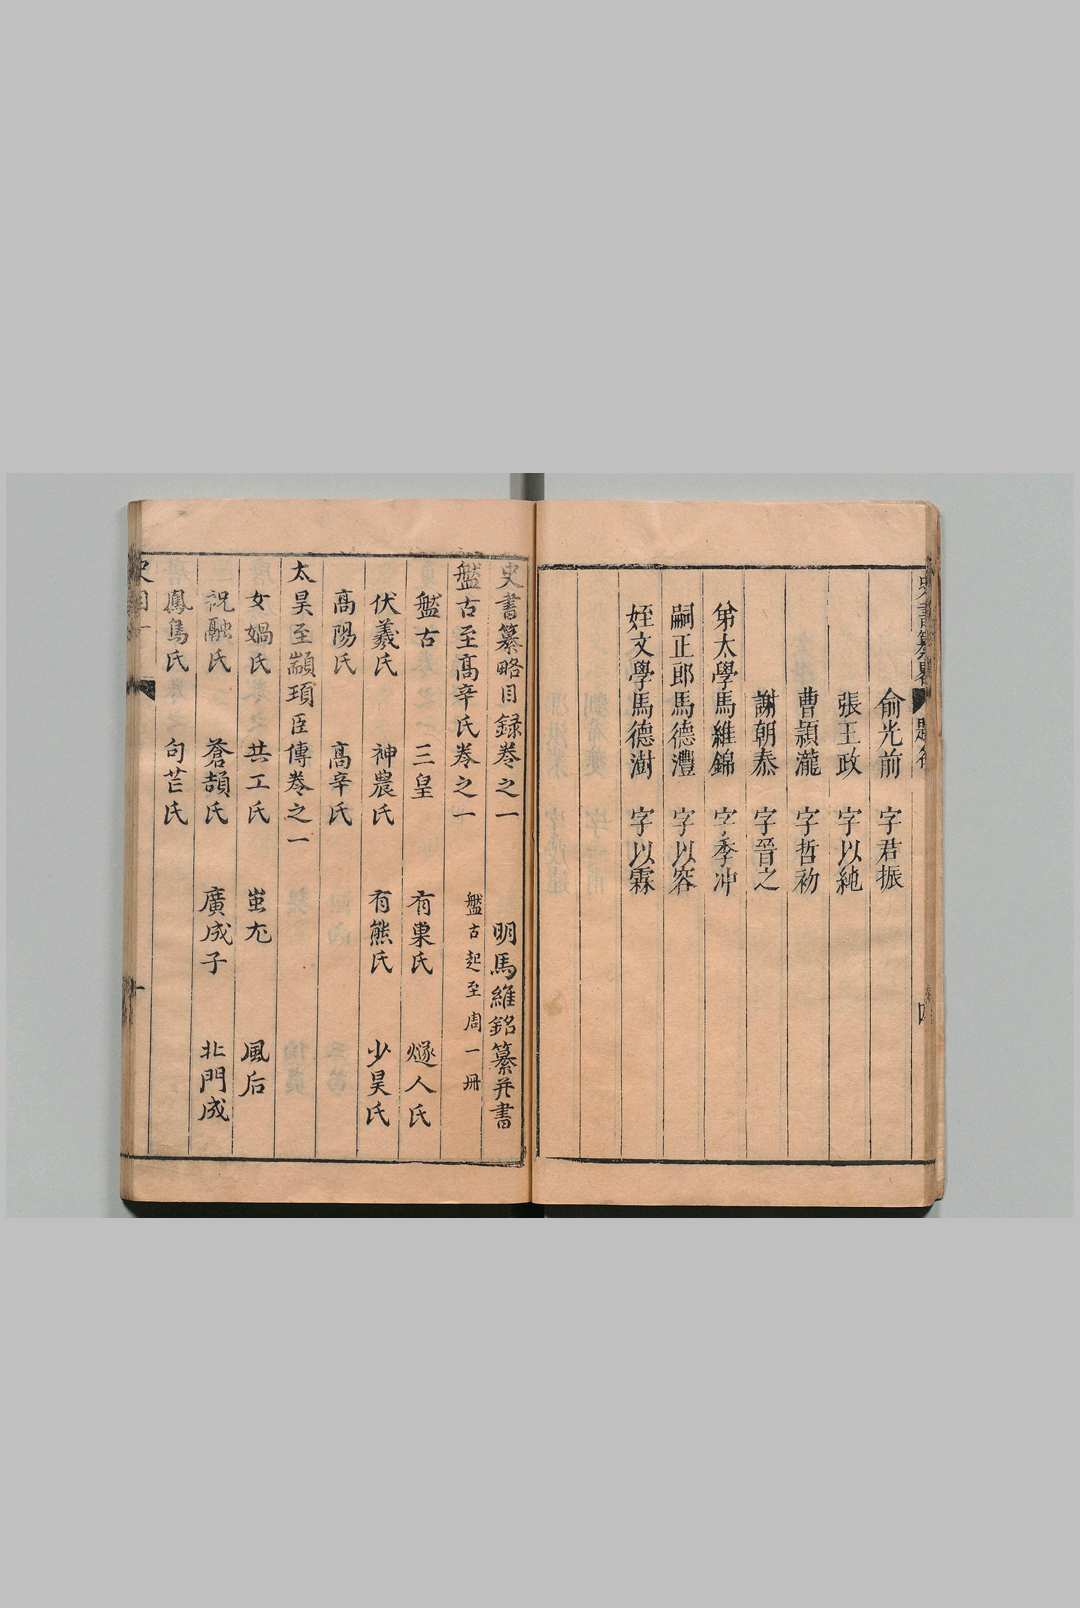 俞光前　字君振
張王政　字以純
曹頴瀧　字哲初
謝朝泰　字晉之
弟太學馬維錦　字季冲
嗣正郎馬德澧　字以容
姪文學馬德澍　字以霖
史書纂略目録卷之一　明馬維銘纂并書
盤古至高辛氏卷之一　盤古起至周一冊
盤古　三皇　有巢氏　燧人氏
伏羲氏　神農氏　有熊氏　少昊氏
高陽氏　高辛氏
太昊至顓頊臣傳卷之一
女媧氏　共工氏　蚩尤　風后
祝融氏　蒼頡氏　廣成子　北門成
鳳鳥氏　句芒氏